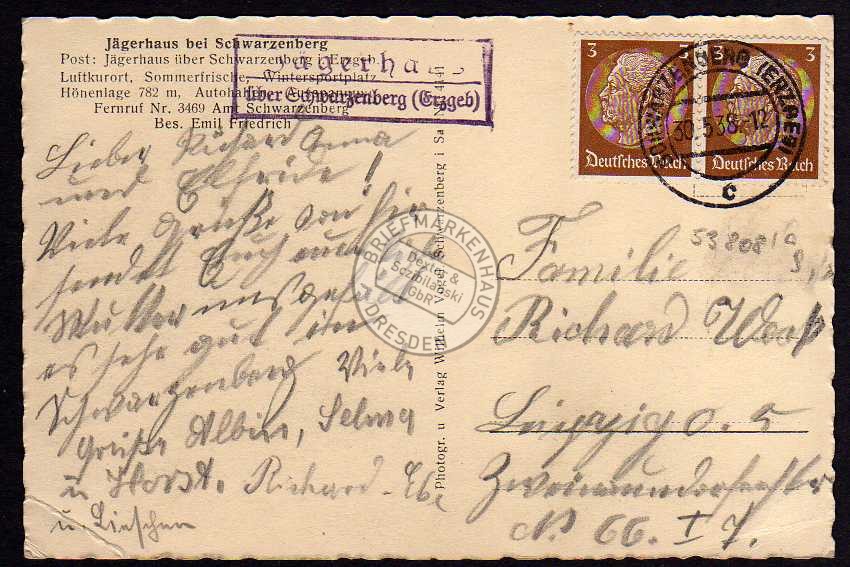 Jägerhaus bei Schwarzenberg
Post: Jägerhaus über Schwarzenberg i. Erzgeb.
Luftkurort, Sommerfrische, Wintersportplatz
Höhenlage 782 m, Autohaltest. Autospann
Fernruf Nr. 3469 Amt Schwarzenberg
Bes. Emil Friedrich
Jägerhaus
über Schwarzenberg (Erzgeb)
3 3
Deutsches Reich Deutsches Reich
SCHWARZENBERG (ERZGEB)
30.5.38.-12
c
Lieber Richard Anna
und Elfriede!
Viele Grüße von hier
sendet Euch auch
Mutter uns gefällt
es sehr gut in
Schwarzenberg Viele
Grüße Albin, Selma
u Horst. Richard
u. Lieschen
Photogr. u Verlag Wilhelm Vogel Schwarzenberg i Sa
53808/a
Familie
Richard
Leipzig O. 5
Zweinaundorferstr
No 66. I 7.
BRIEFMARKENHAUS
Dexter &
Szibilawski
GbR
DRESDEN